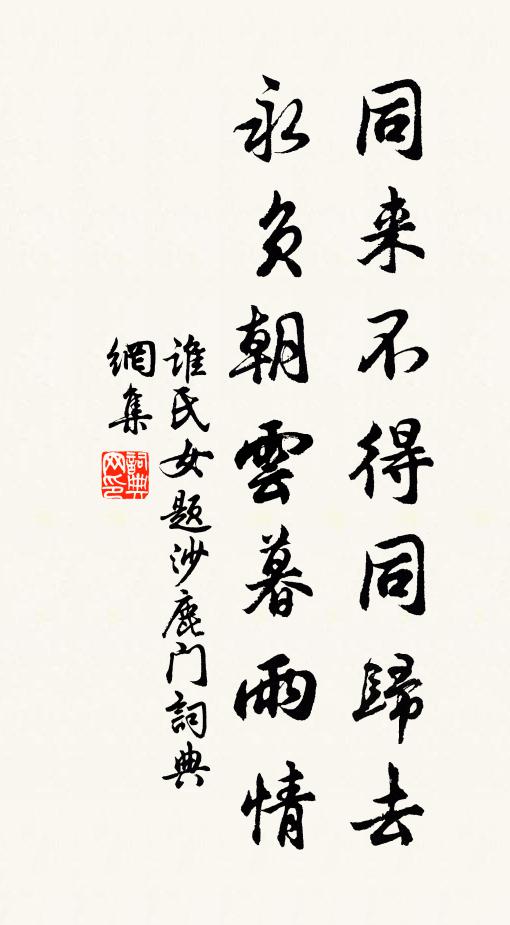 同来不得同歸去
永负朝雲暮雨情
誰氏女题沙鹿门詞典
網集
詞典网印